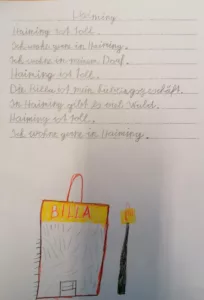 Haiming
Haiming ist toll.
Ich wohne gerne in Haiming.
Ich wohne in meinem Dorf.
Haiming ist toll.
Der Billa ist mein Lieblingsgeschäft.
In Haiming gibt es viel Wald.
Haiming ist toll.
Ich wohne gerne in Haiming.
BILLA